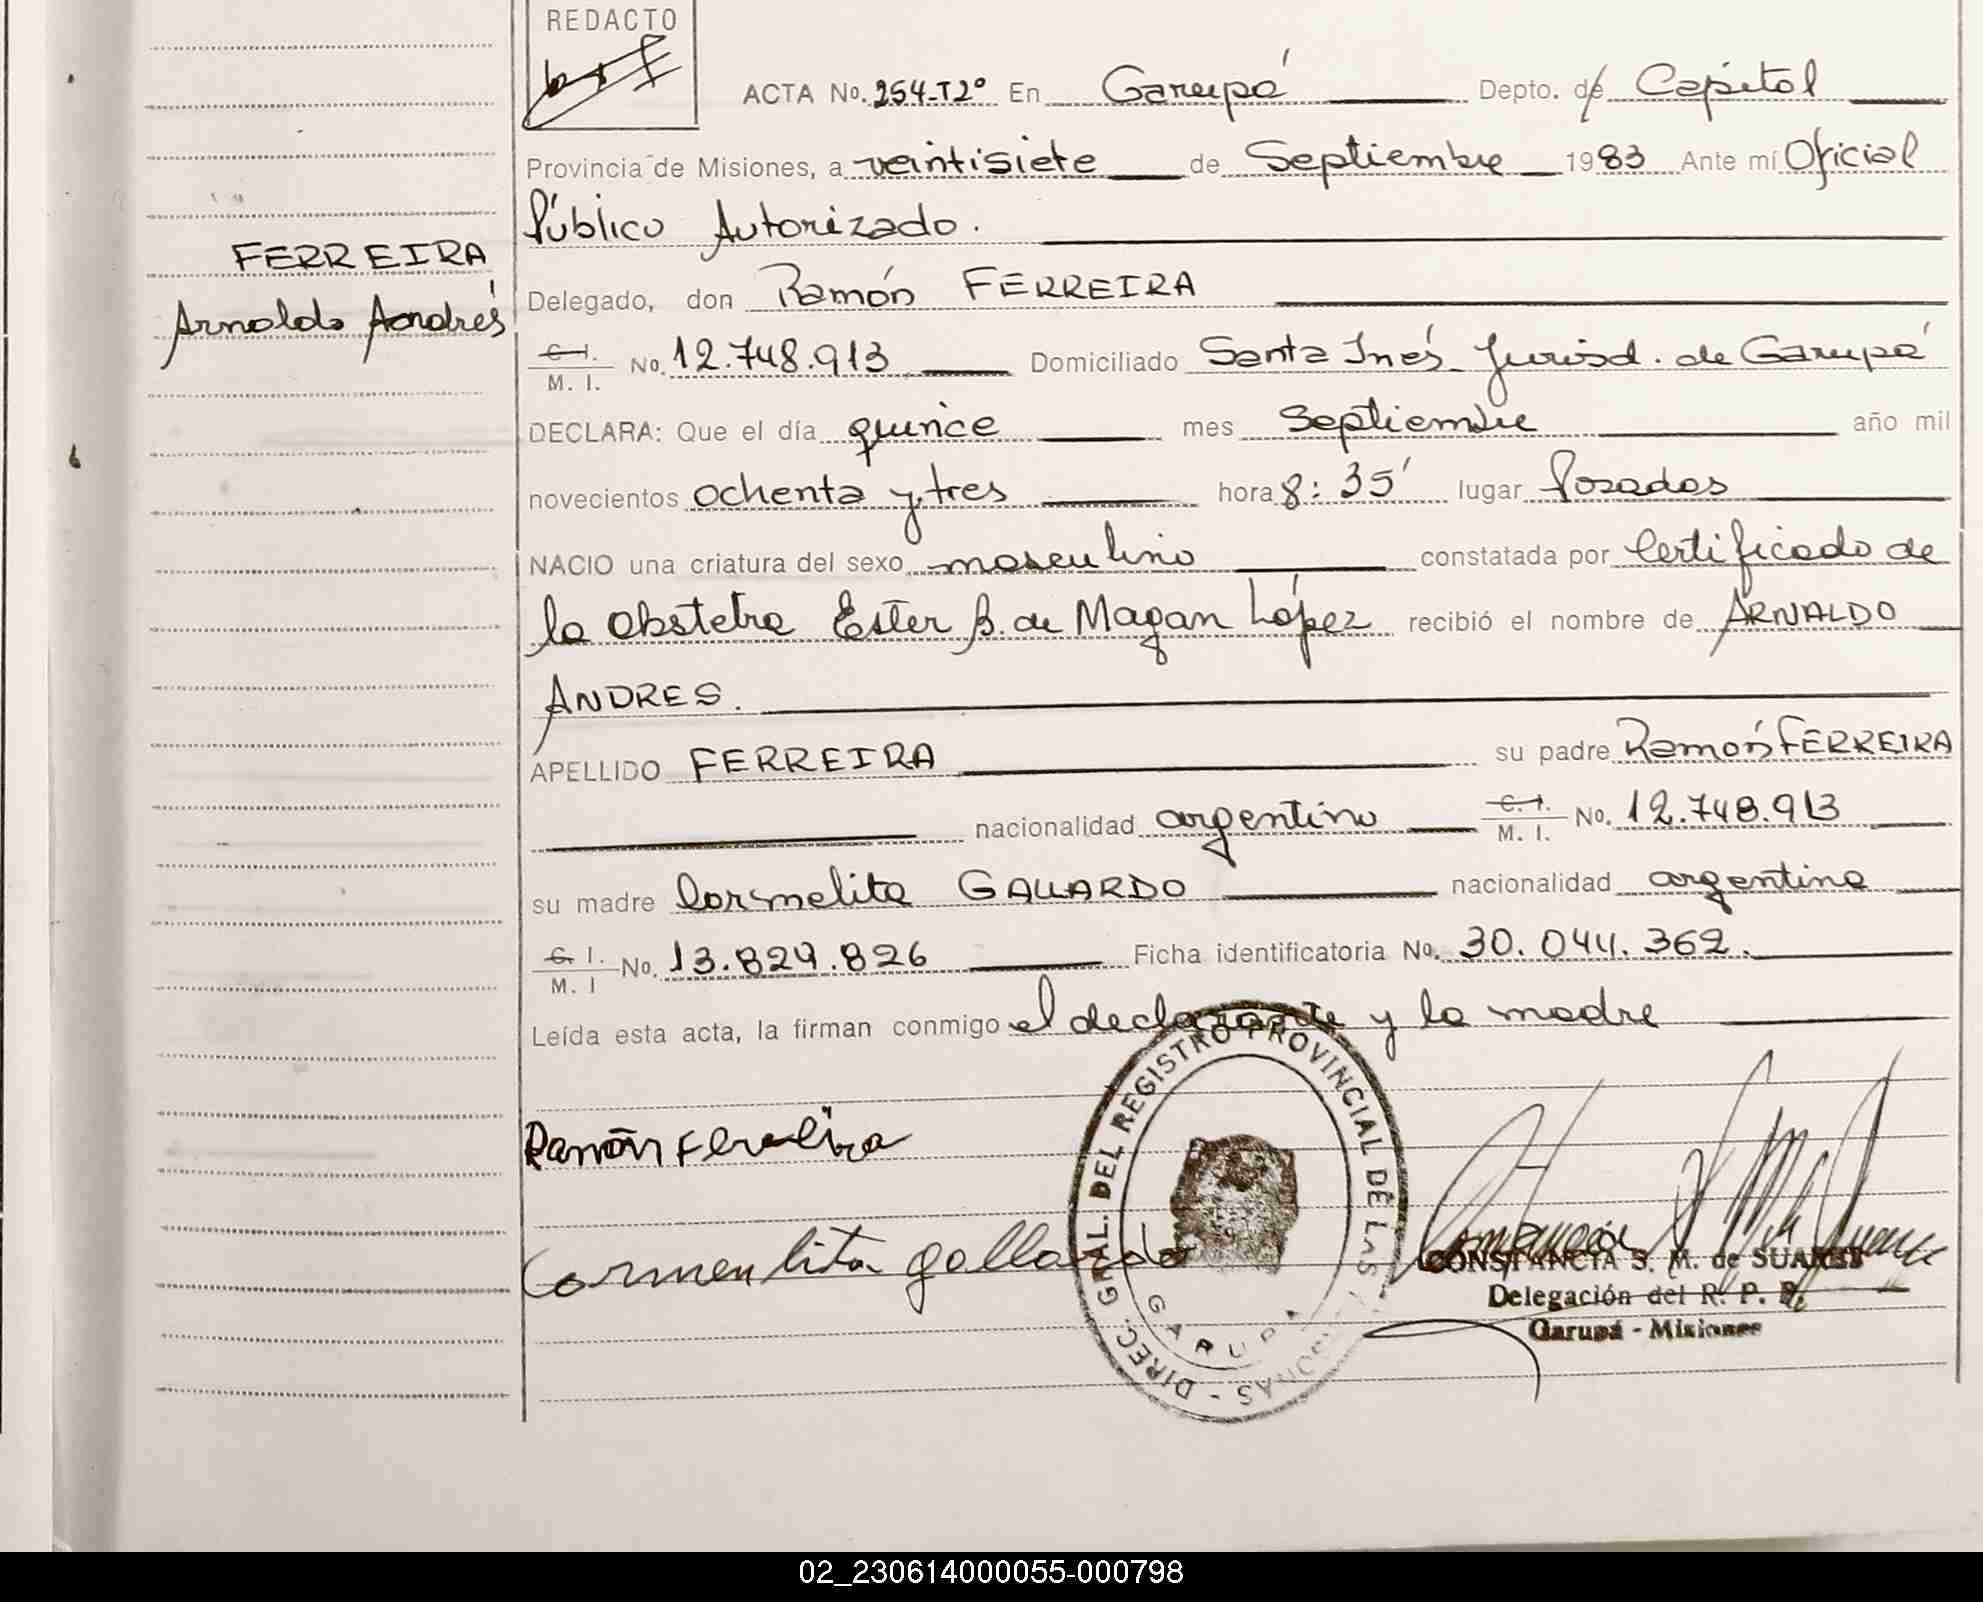 REDACTO
ACTA No. 254-T2º En Garupá Depto. de Capital
Provincia de Misiones, a veintisiete de Septiembre 1983 Ante mí Oficial
Público Autorizado.
Delegado, don Ramón FERREIRA
C. I. M. I. No. 12.748.913 Domiciliado Santa Inés Jurisd. de Garupá
DECLARA: Que el día quince mes Septiembre año mil
novecientos ochenta y tres hora 8:35' lugar Posadas
NACIO una criatura del sexo masculino constatada por Certificado de
la obstetra Ester B. de Magan López recibió el nombre de ARNALDO
ANDRES.
APELLIDO FERREIRA su padre Ramón FERREIRA
nacionalidad argentino C. I. M. I. No. 12.748.913
su madre Carmelita GALLARDO nacionalidad argentina
C. I. M. I No. 13.829.826 Ficha identificatoria No. 30.044.362.
Leída esta acta, la firman conmigo el declarante y la madre
FERREIRA
Arnaldo Andrés
Ramón Ferreira
Carmenlita gallardo
DIREC. GRAL. DEL REGISTRO PROVINCIAL DE LAS PERSONAS -
GARUPA
CONSTANCIA S. M. de SUAREZ
Delegación del R. P. P.
Garupá - Misiones
02_230614000055-000798